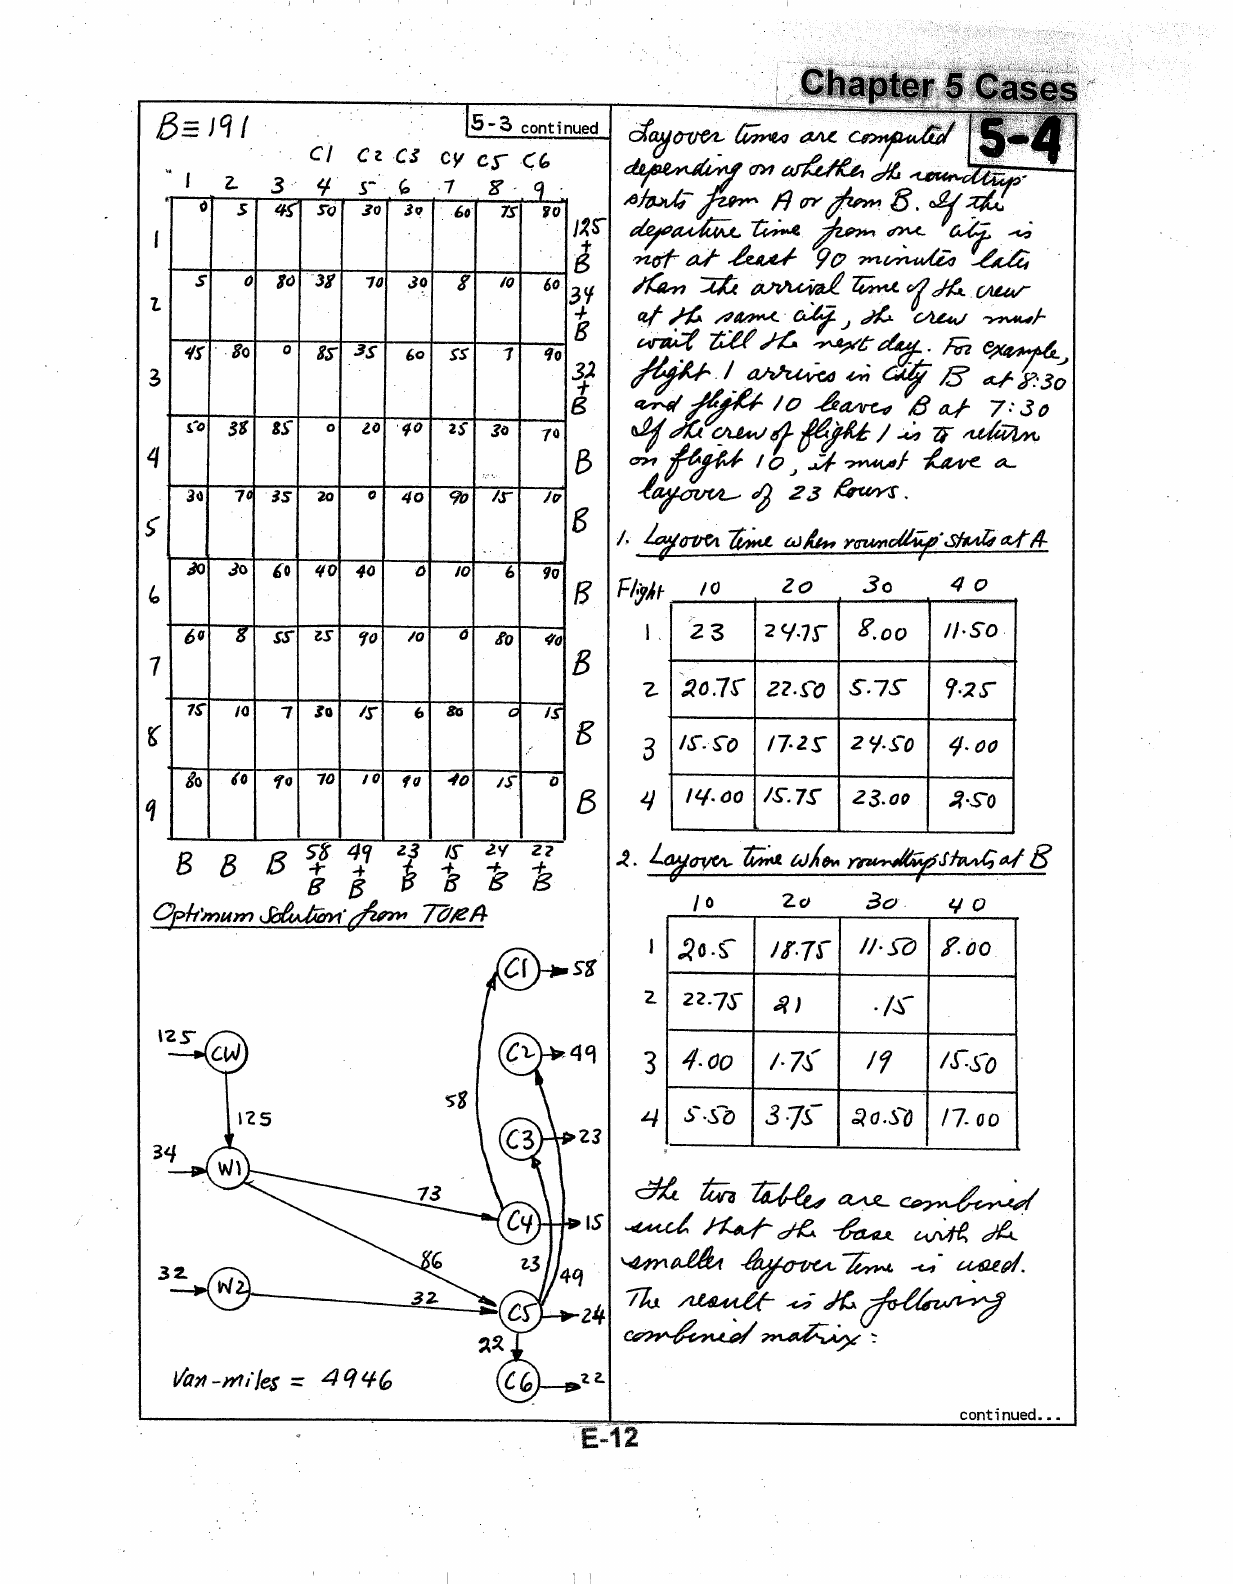 Chapter 5 Cases
B≡191
5-3 continued
C1 C2 C3 C4 C5 C6
1 2 3 4 5 6 7 8 9
1 0 5 45 50 30 30 60 75 80 125+B
2 5 0 80 38 70 30 8 10 60 34+B
3 45 80 0 85 35 60 55 7 90 32+B
4 50 38 85 0 20 40 25 30 70 B
5 30 70 35 20 0 40 90 15 10 B
6 30 30 60 40 40 0 10 6 90 B
7 60 8 55 25 90 10 0 80 40 B
8 75 10 7 30 15 6 80 0 15 B
9 80 60 90 70 10 90 40 15 0 B
B B B 58+B 49+B 23+B 15+B 24+B 22+B
Optimum solution from TORA
C1 58
125 CW
C2 49
58
125
C3 23
34 W1
73
C4 15
86
23
49
32 W2
32
C5 24
22
Van-miles = 4946
C6 22
5-4
Layover times are computed
depending on whether the roundtrip
starts from A or from B. If the
departure time from one city is
not at least 90 minutes later
than the arrival time of the crew
at the same city, the crew must
wait till the next day. For example,
flight 1 arrives in City B at 8:30
and flight 10 leaves B at 7:30
If the crew of flight 1 is to return
on flight 10, it must have a
layover of 23 hours.
1. Layover time when roundtrip starts at A
Flight 10 20 30 40
1. 23 24.75 8.00 11.50
2 20.75 22.50 5.75 9.25
3 15.50 17.25 24.50 4.00
4 14.00 15.75 23.00 2.50
2. Layover time when roundtrip starts at B
10 20 30 40
1 20.5 18.75 11.50 8.00
2 22.75 21 .15
3 4.00 1.75 19 15.50
4 5.50 3.75 20.50 17.00
The two tables are combined
such that the base with the
smaller layover time is used.
The result is the following
combined matrix:
continued...
E-12